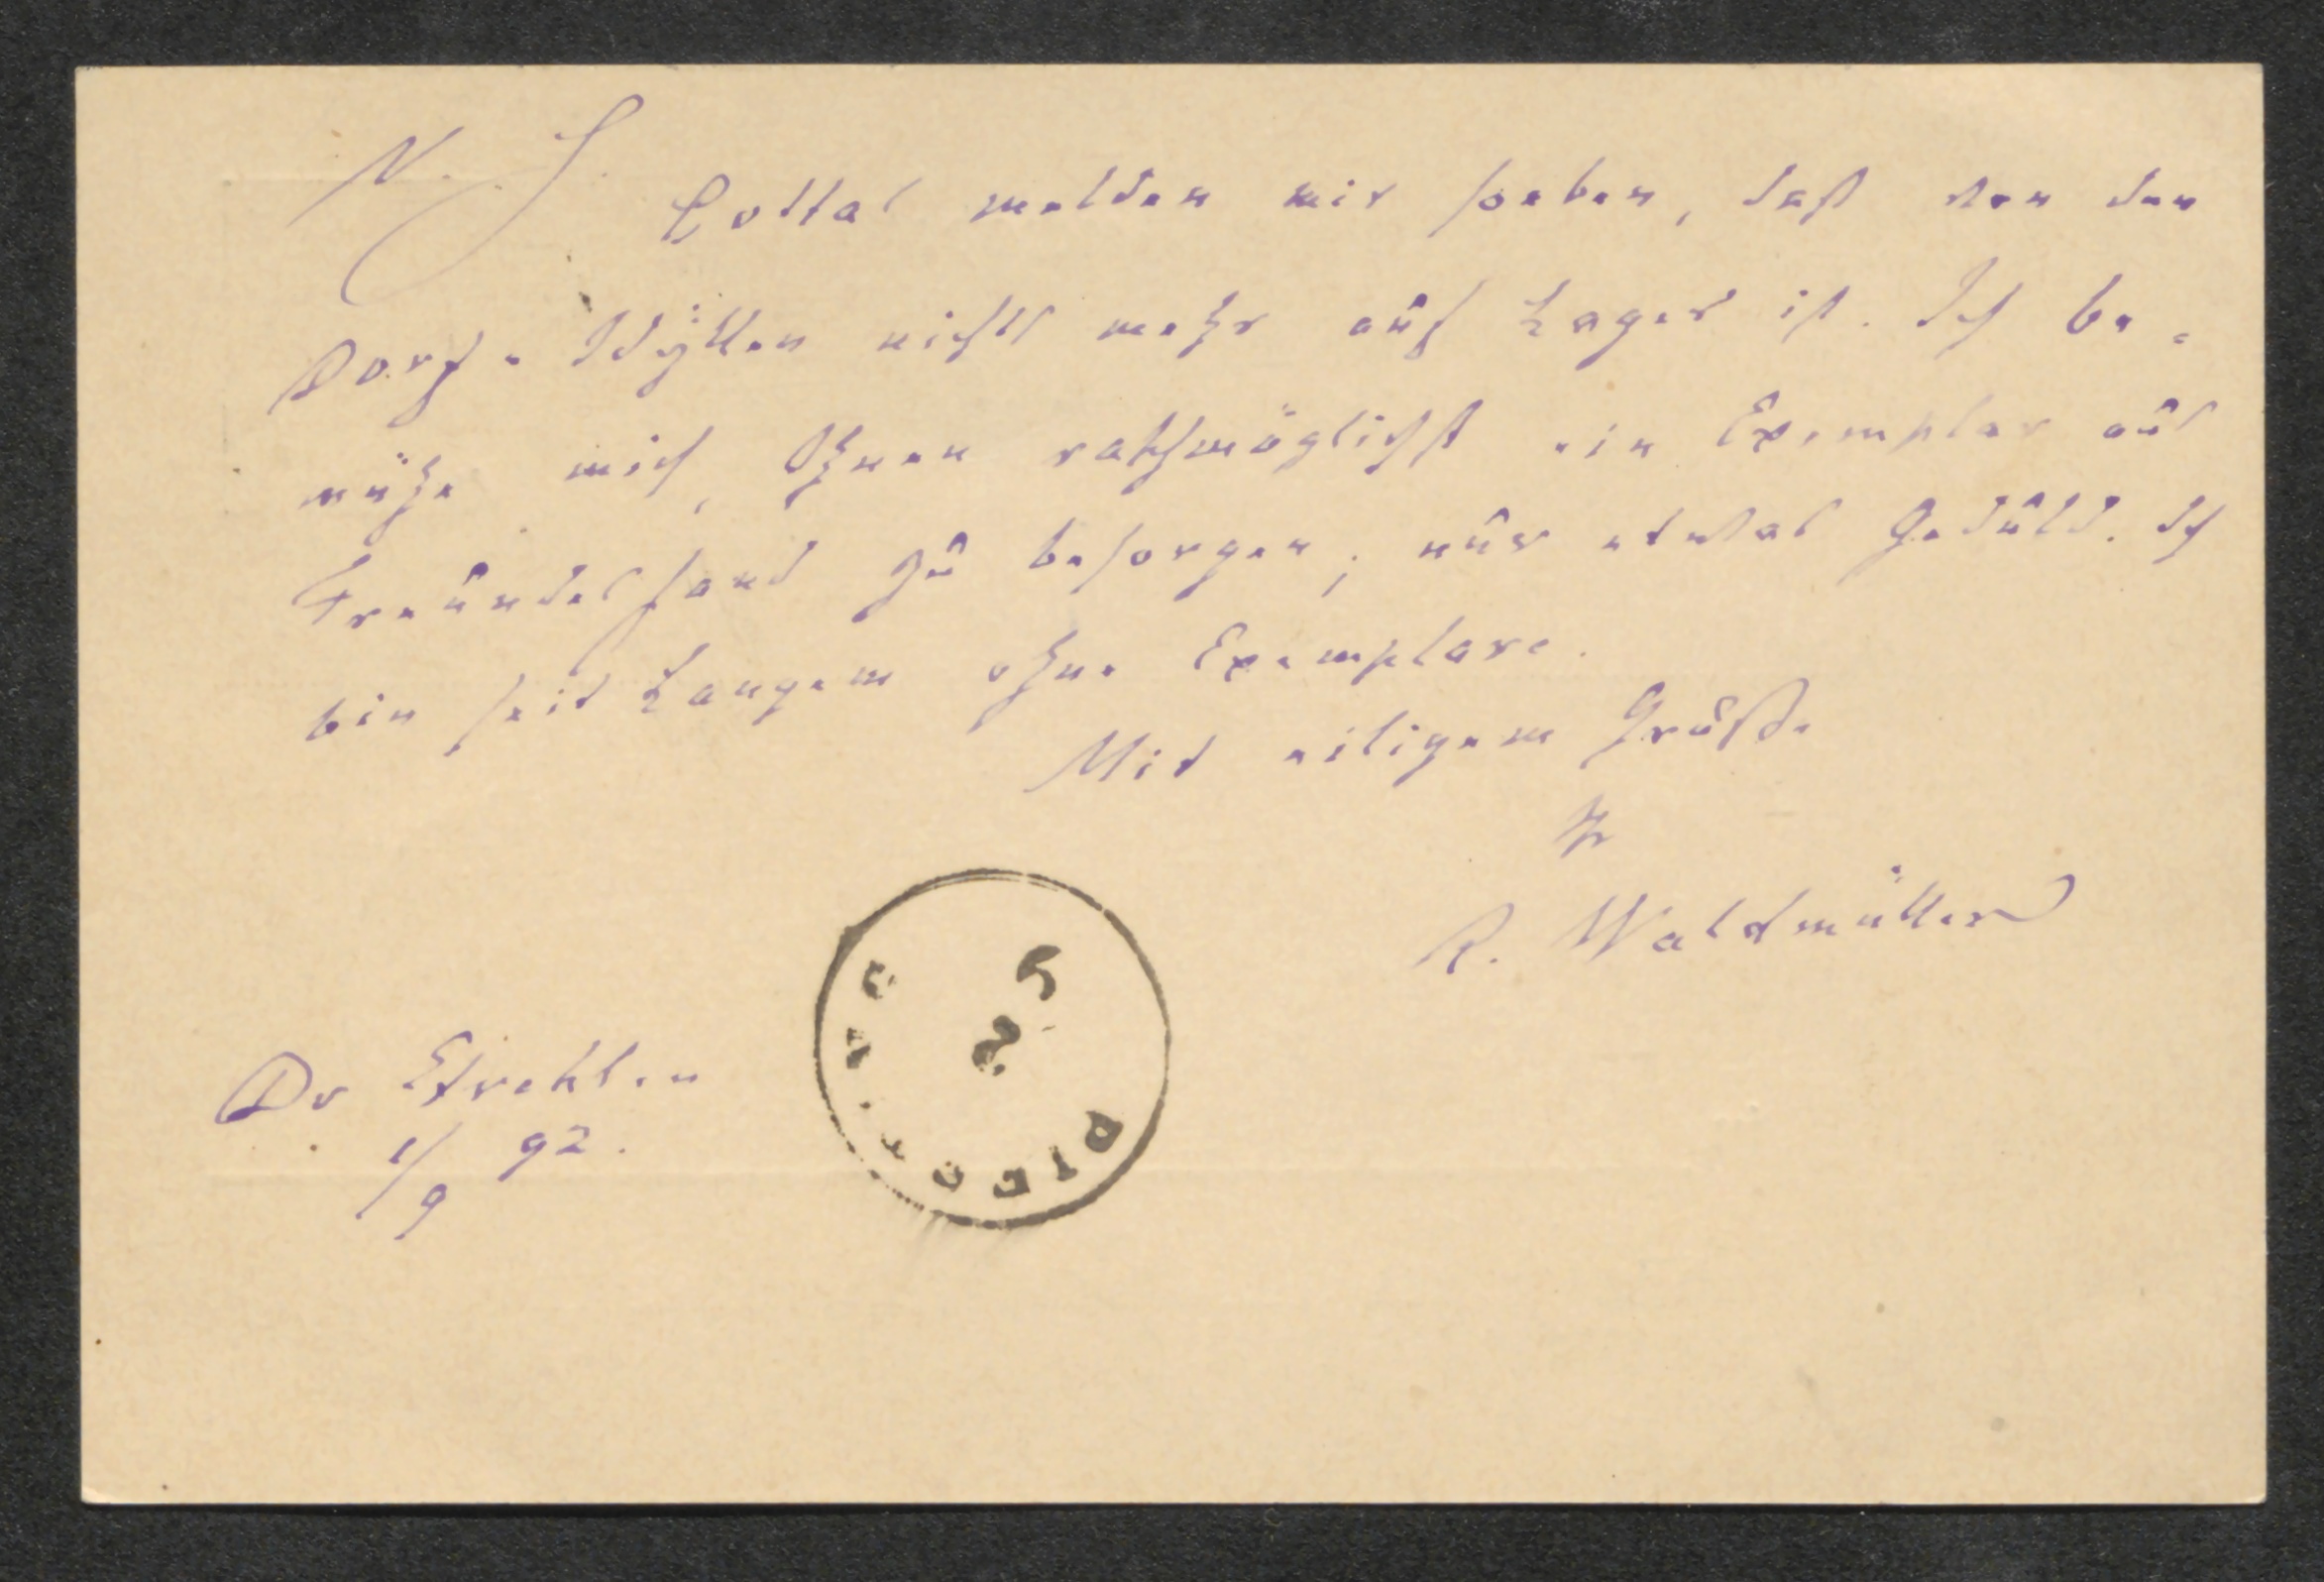 N. S.
Cottas melden mir soeben, daß von den
Dorf-Idyllen nichts mehr auf Lager ist. Ich be-
mühe mich, Ihnen raschmöglichst ein Exemplar aus
Freundeshand zu besorgen; nur etwas Geduld. Ich
bin seit Langem ohne Exemplare.
Mit eiligem Gruße
Ihr
R. Waldmüller
Dr Strehlen
1/9 92.